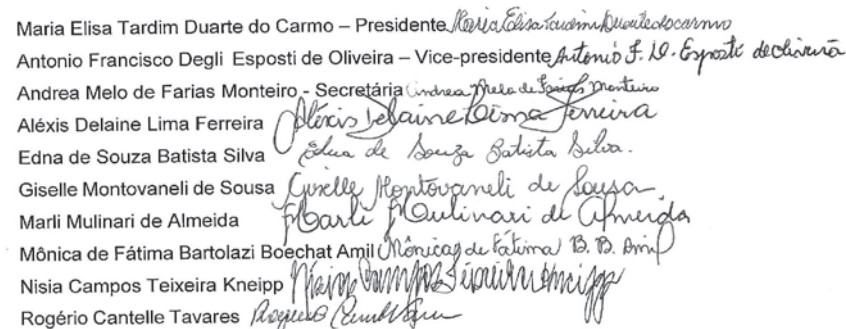 Maria Elisa Tardim Duarte do Carmo – Presidente Maria Elisa Tardim Duarte do Carmo
Antonio Francisco Degli Esposti de Oliveira – Vice-presidente Antonio F. D. Esposti de Oliveira
Andrea Melo de Farias Monteiro - Secretária Andrea Melo de Farias Monteiro
Aléxis Delaine Lima Ferreira Aléxis Delaine Lima Ferreira
Edna de Souza Batista Silva Edna de Souza Batista Silva.
Giselle Montovaneli de Sousa Giselle Montovaneli de Sousa
Marli Mulinari de Almeida Marli Mulinari de Almeida
Mônica de Fátima Bartolazi Boechat Amil Mônica de Fátima B. B. Amil
Nisia Campos Teixeira Kneipp Nisia Campos Teixeira Kneipp
Rogério Cantelle Tavares